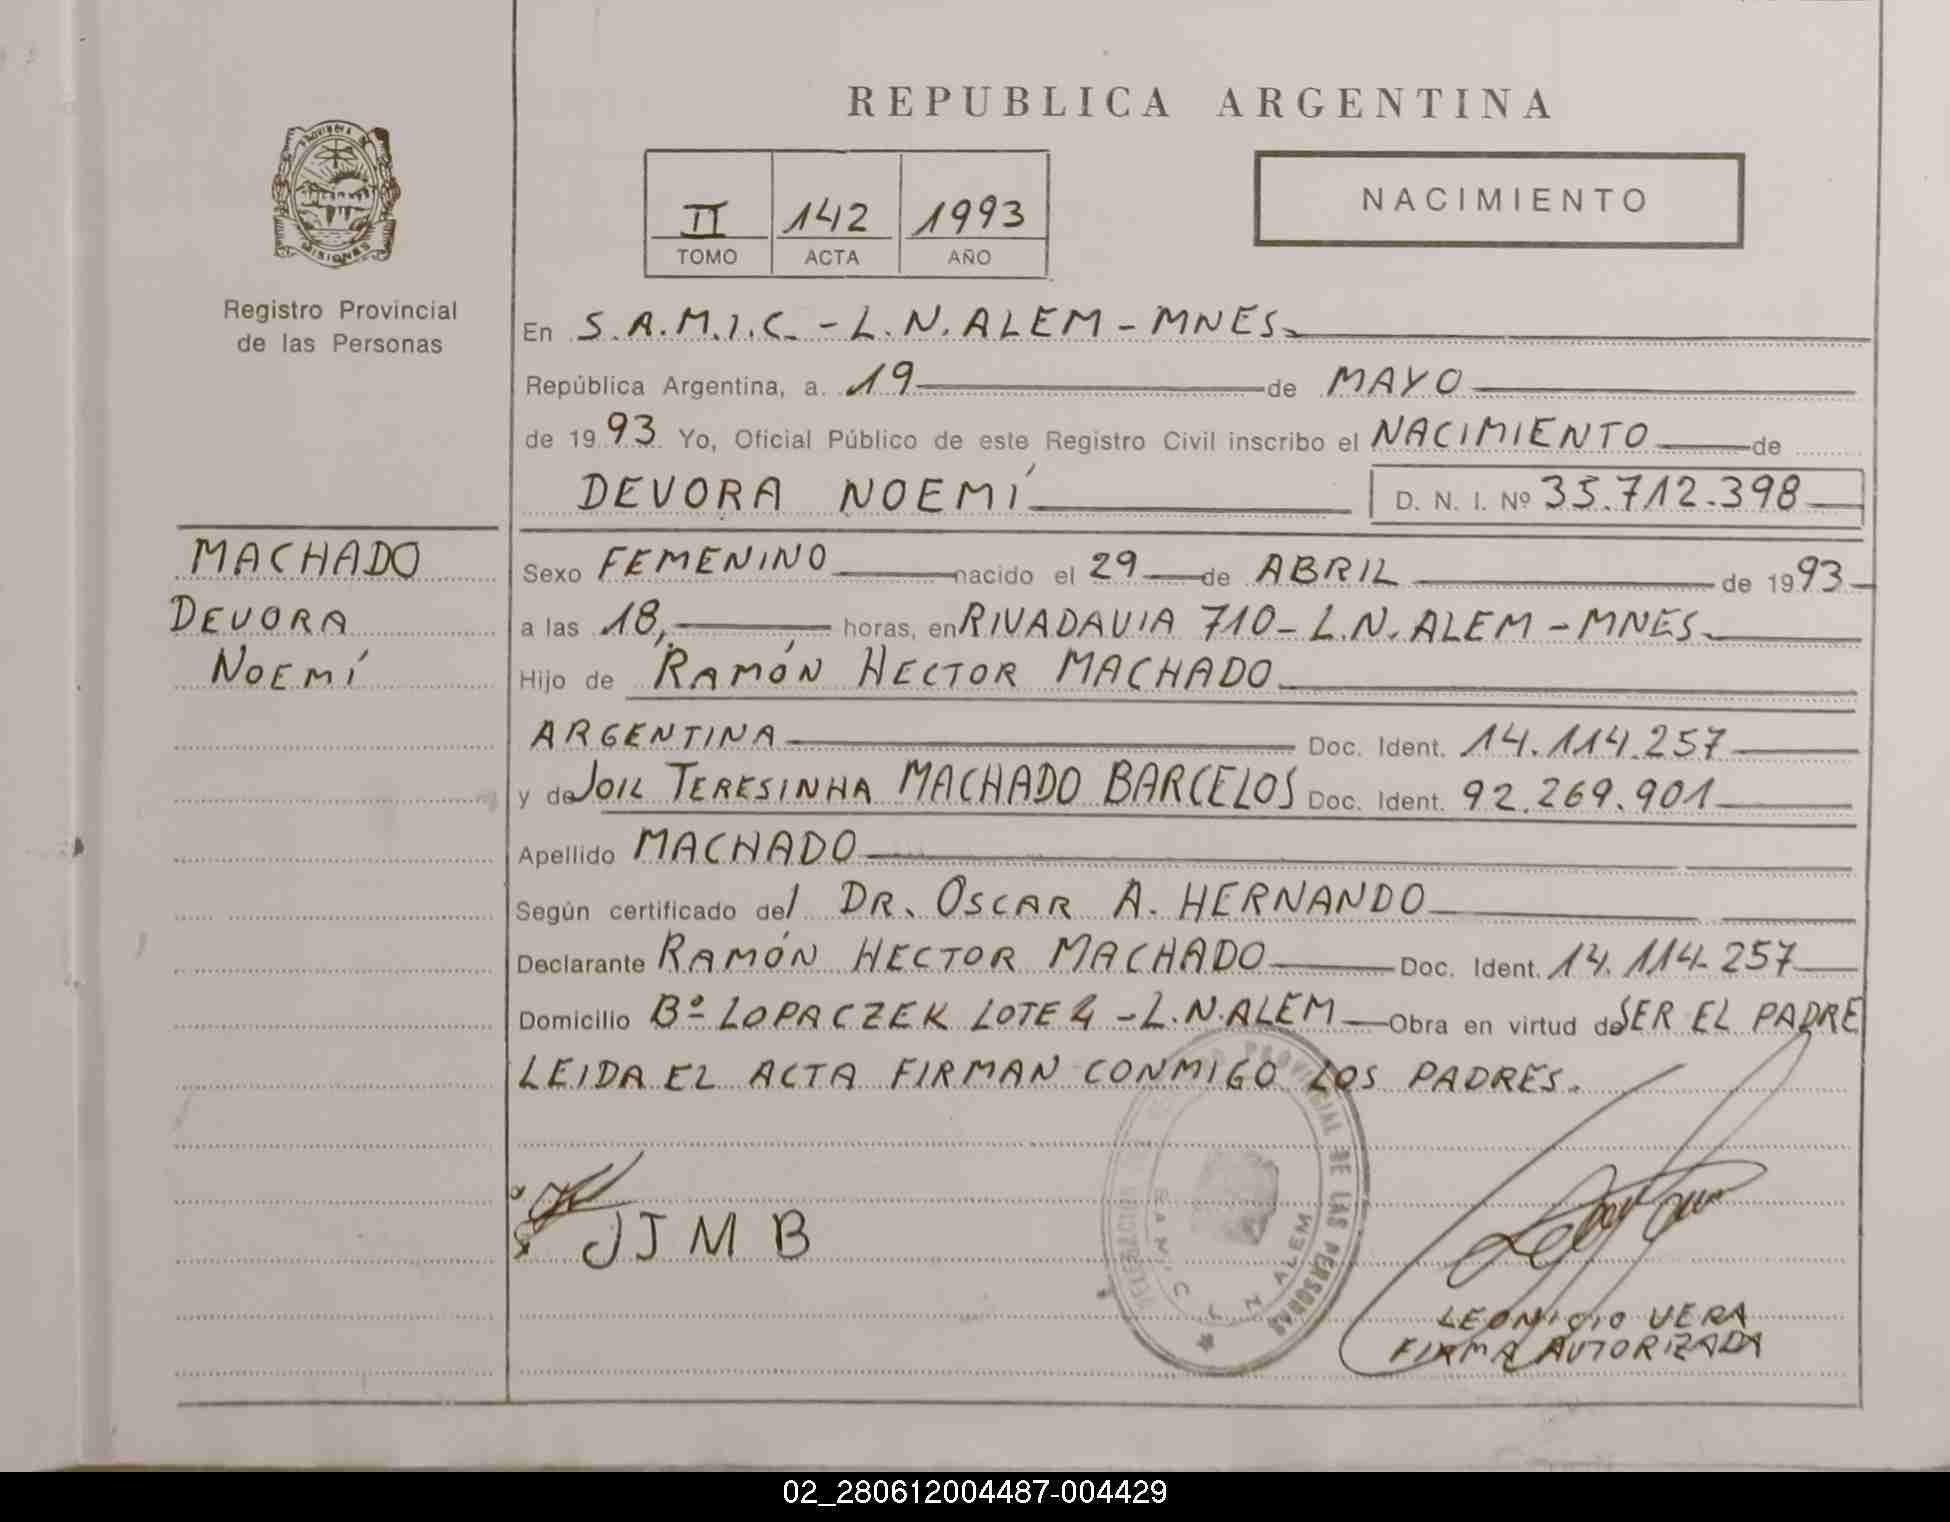 REPUBLICA ARGENTINA
PROVINCIA DE
MISIONES
Registro Provincial
de las Personas
II 142 1993
TOMO ACTA AÑO
NACIMIENTO
En S.A.M.I.C. - L.N. ALEM - MNES.
República Argentina, a 19 de MAYO
de 1993 Yo, Oficial Público de este Registro Civil inscribo el NACIMIENTO de
DEVORA NOEMÍ D. N. I. Nº 35.712.398
MACHADO
DEVORA
NOEMÍ
Sexo FEMENINO nacido el 29 de ABRIL de 1993
a las 18, horas, en RIVADAVIA 710 - L.N. ALEM - MNES.
Hijo de RAMÓN HECTOR MACHADO
ARGENTINA Doc. Ident. 14.114.257
y de JOIL TERESINHA MACHADO BARCELOS Doc. Ident. 92.269.901
Apellido MACHADO
Según certificado del DR. OSCAR A. HERNANDO
Declarante RAMÓN HECTOR MACHADO Doc. Ident. 14.114.257
Domicilio Bº LOPACZEK LOTE 4 - L.N. ALEM Obra en virtud de SER EL PADRE
LEIDA EL ACTA FIRMAN CONMIGO LOS PADRES.
JJMB
PROVINCIAL DE LAS PERSONAS
N. ALEM
LEONICIO VERA
FIRMA AUTORIZADA
02_280612004487-004429